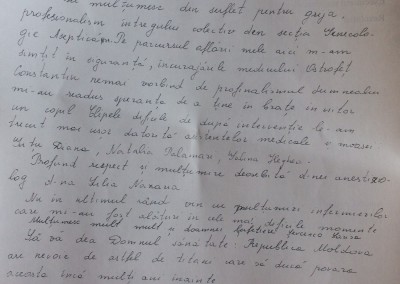 mulțumesc din suflet pentru grija,
profesionalism întregului colectiv den secția Genecolo-
gie Aseptică. Pe parcursul aflării mele aici m-am
simțit în siguranță, încurajările medicului Ostrofeț
Constantin nemai vorbind de profinalismul dumnealui
mi-au readus speranța de a ține în brațe în viitor
un copil. Clipele dificile de după intervenție le-am
trecut mai ușor datorită asistentelor medicale și moașei
Diana, Natalia Palamari,
Profund respect și mulțumire deosebită d-nei anestizo-
log d-na Lilia
Nu în ultimul rând vin cu mulțumiri infirmierelor
care mi-au fost alături în cele mai dificile momente
Mulțumesc mult mult și doamnei
Să vă dea Domnul sănătate. Republica Moldova
are nevoie de astfel de titani care să ducă povara
aceasta încă mulți ani înainte